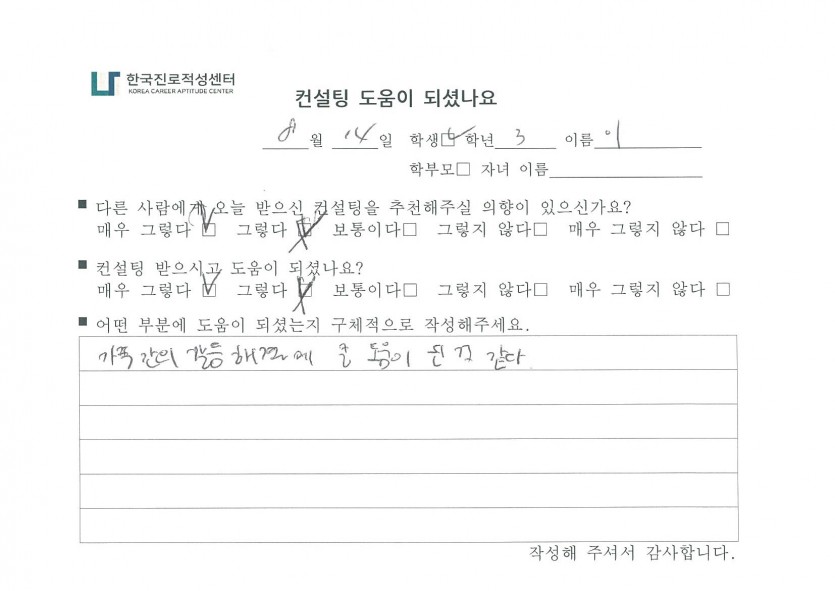 한국진로적성센터
KOREA CAREER APTITUDE CENTER
컨설팅 도움이 되셨나요
8월 14일 학생☑ 학년 3 이름 이
학부모□ 자녀 이름
■ 다른 사람에게 오늘 받으신 컨설팅을 추천해주실 의향이 있으신가요?
매우 그렇다 ☑ 그렇다 ☑ 보통이다□ 그렇지 않다□ 매우 그렇지 않다 □
■ 컨설팅 받으시고 도움이 되셨나요?
매우 그렇다 ☑ 그렇다 ☑ 보통이다□ 그렇지 않다□ 매우 그렇지 않다 □
■ 어떤 부분에 도움이 되셨는지 구체적으로 작성해주세요.
가족간의 갈등 해결에 큰 도움이 된 것 같다
작성해 주셔서 감사합니다.